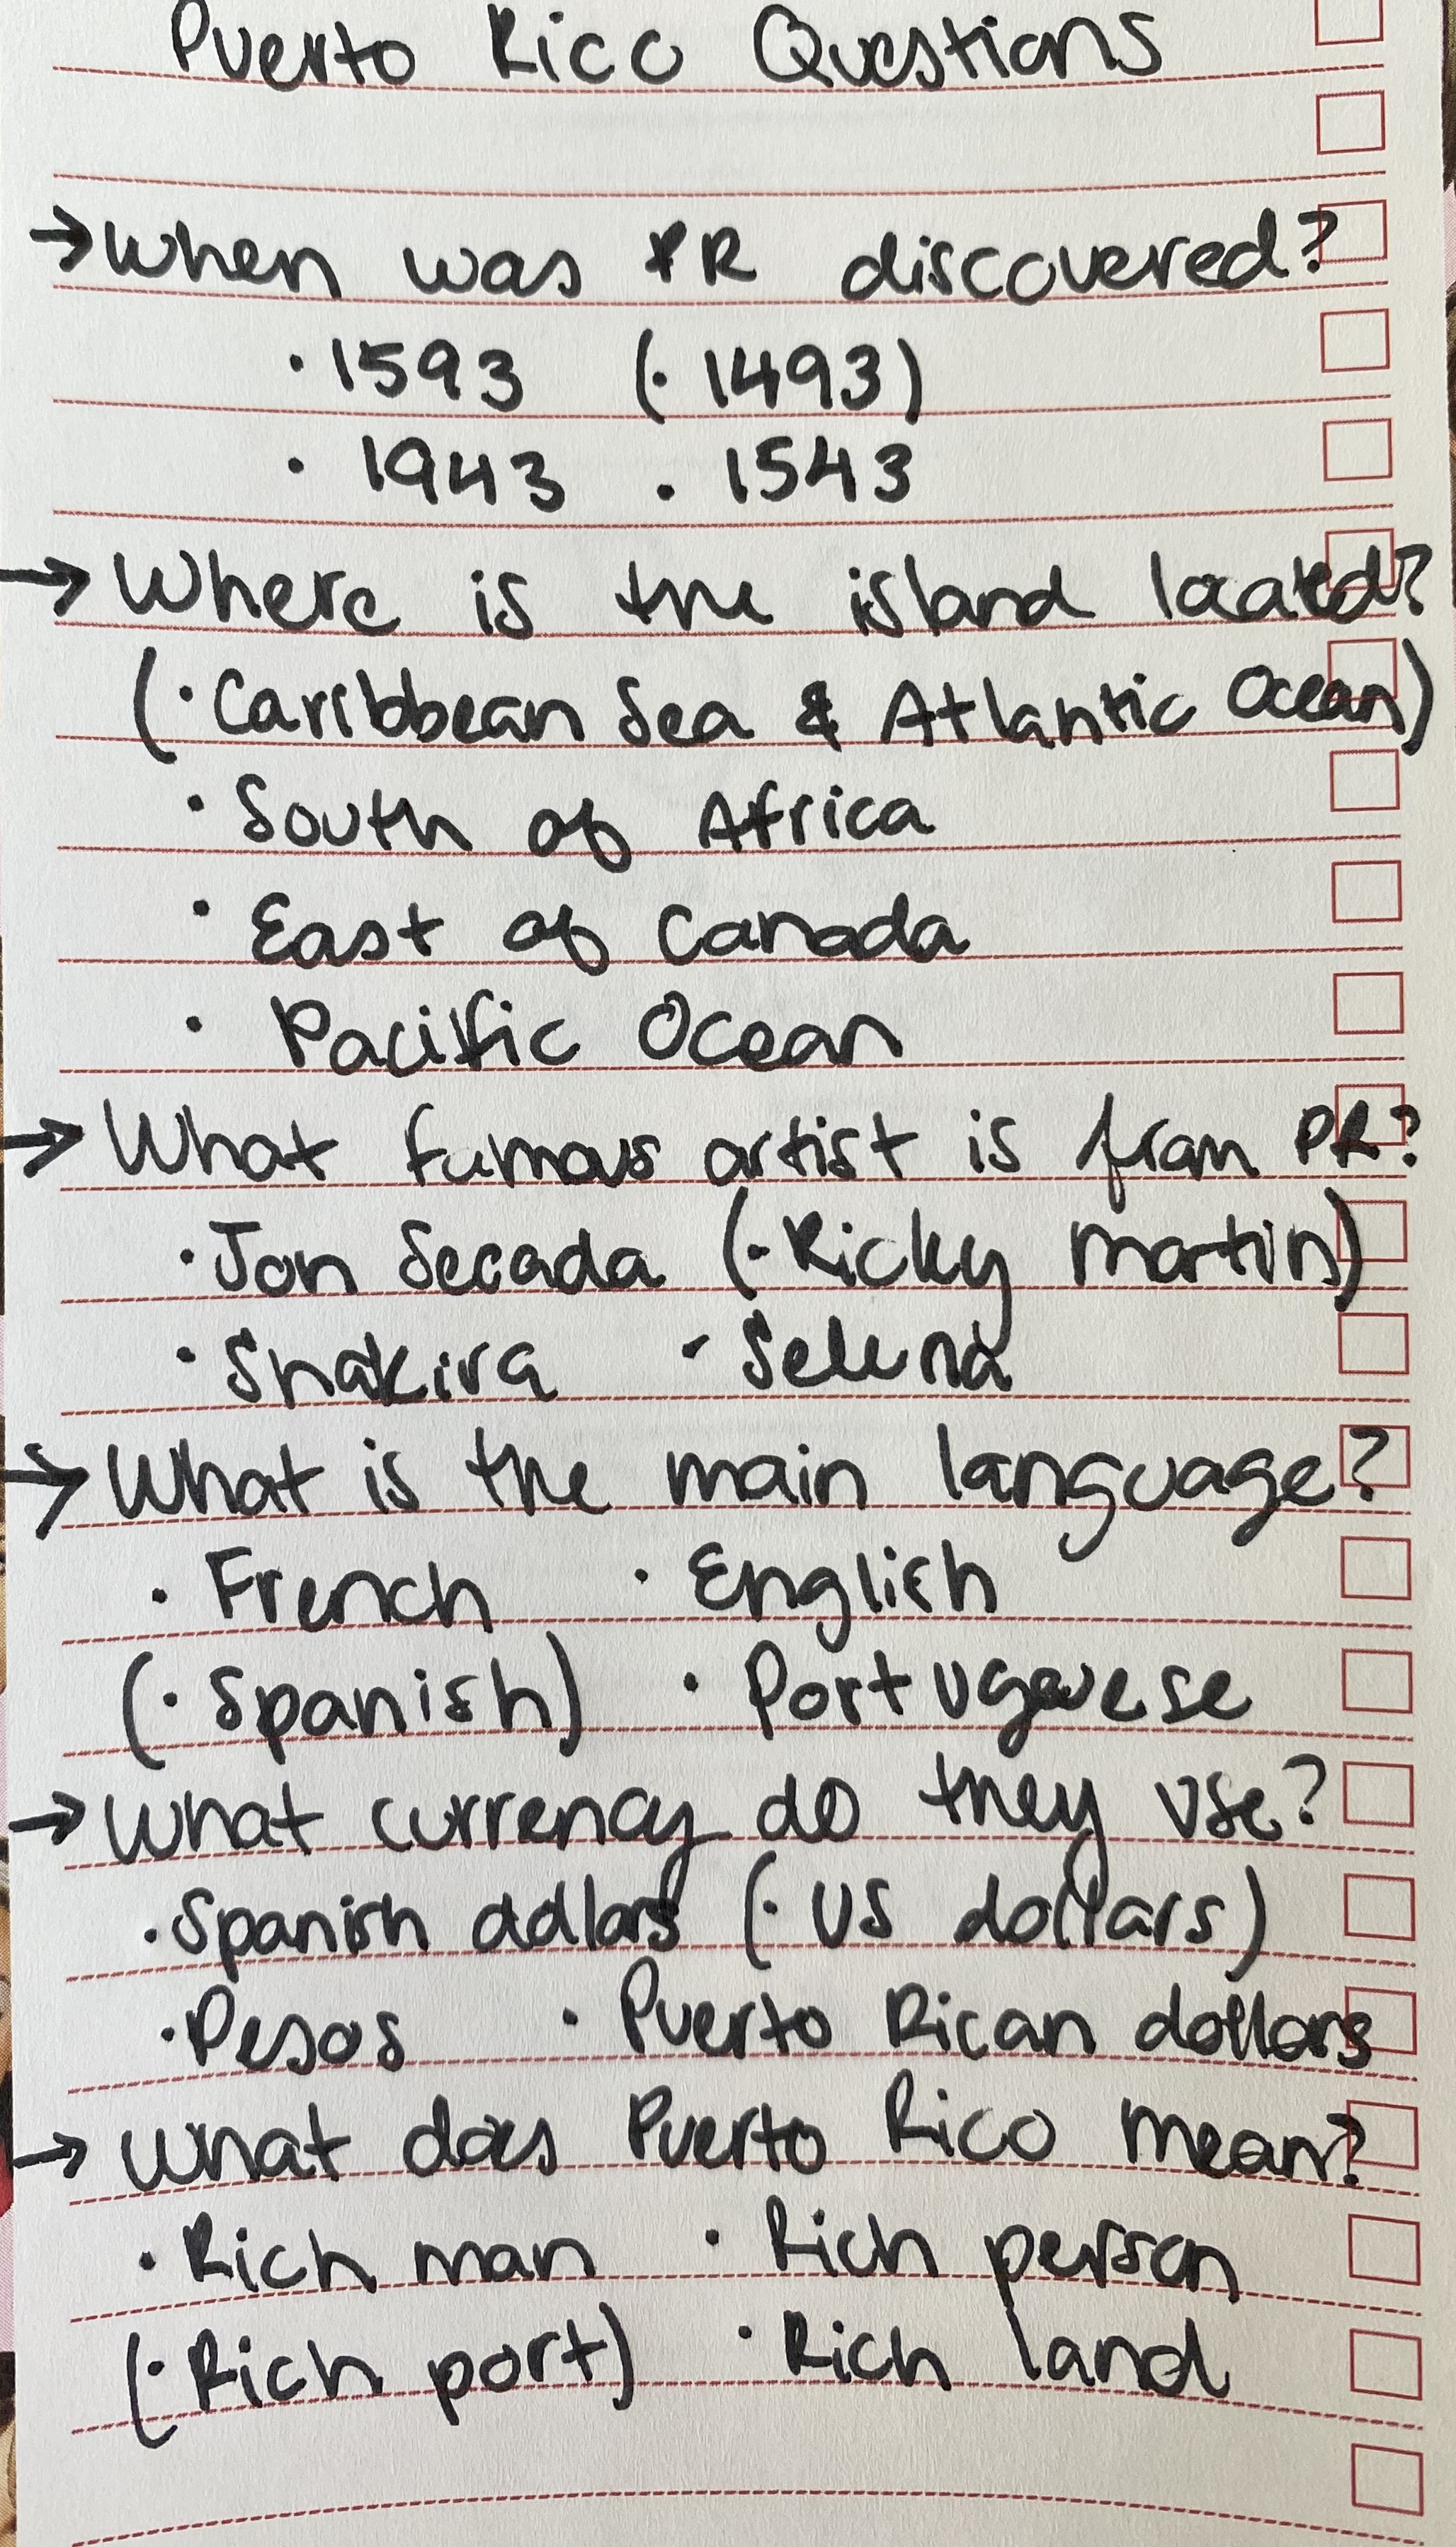 Puerto Rico Questions
→ When was PR discovered?
· 1593 (· 1493)
· 1943 · 1543
→ Where is the island located?
(· Caribbean Sea & Atlantic Ocean)
· South of Africa
· East of Canada
· Pacific Ocean
→ What famous artist is from PR?
· Jon Secada (· Ricky Martin)
· Shakira · Selena
→ What is the main language?
· French · English
(· Spanish) · Portuguese
→ What currency do they use?
· Spanish dollars (· US dollars)
· Pesos · Puerto Rican dollars
→ What does Puerto Rico mean?
· Rich man · Rich person
(· Rich port) · Rich land